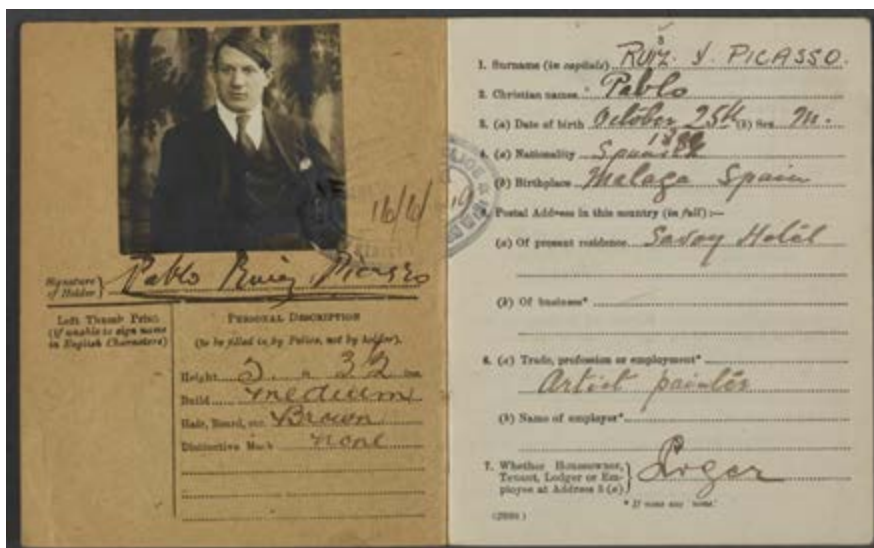 16/6/19
Signature of Holder} Pablo Ruiz Picasso
Left Thumb Print
(if unable to sign name
in English Characters)
PERSONAL DESCRIPTION
(to be filled in by Police, not by holder).
Height 5 3½
Build medium
Hair, Beard, etc. Brown
Distinctive Mark none
3
1. Surname (in capitals) RUIZ. Y. PICASSO.
2. Christian names Pablo
3. (a) Date of birth October 25th (b) Sex M.
4. (a) Nationality Spanish
(b) Birthplace Malaga Spain
5. Postal Address in this country (in full):—
(a) Of present residence Savoy Hotel
(b) Of business*
6. (a) Trade, profession or employment*
Artist painter
(b) Name of employer*
7. Whether Houseowner,
Tenant, Lodger or Em-
ployee at Address 5 (a)}
* If none say 'none.'